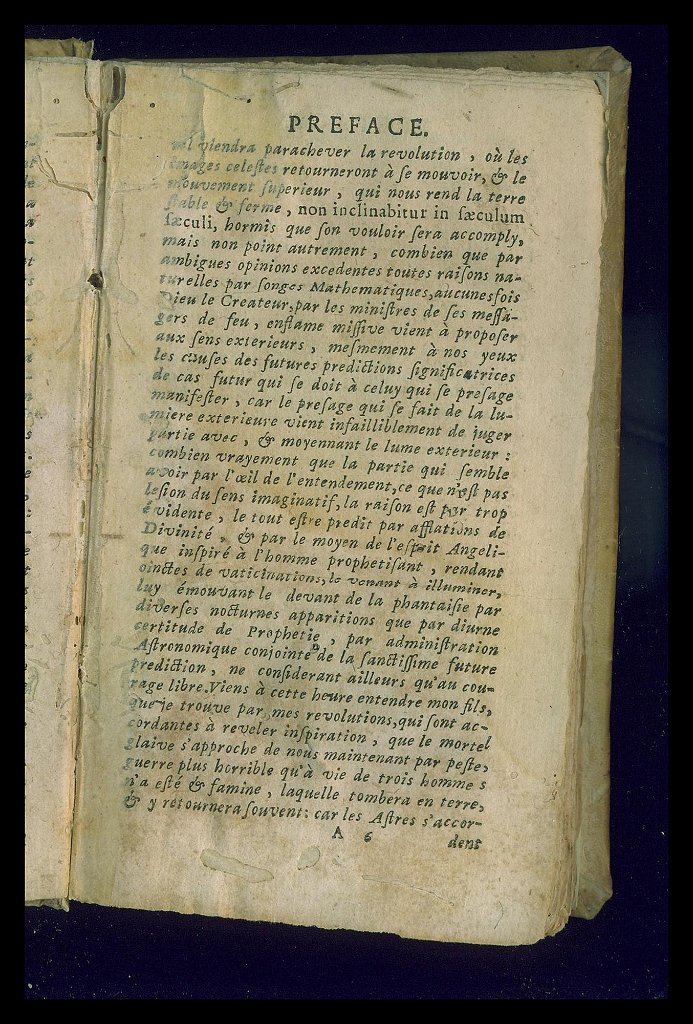 PREFACE.
viendra parachever la revolution, où les
images celeſtes retourneront à ſe mouvoir, & le
mouvement ſuperieur, qui nous rend la terre
ſtable & ferme, non inclinabitur in ſæculum
ſæculi, hormis que ſon vouloir ſera accomply,
mais non point autrement, combien que par
ambigues opinions excedentes toutes raiſons na-
turelles par ſonges Mathematiques, aucunesfois
Dieu le Createur, par les miniſtres de ſes meſſa-
gers de feu, enflame miſſive vient à propoſer
aux ſens exterieurs, meſmement à nos yeux
les cauſes des futures predictions ſignificatrices
de cas futur qui ſe doit à celuy qui ſe preſage
manifeſter, car le preſage qui ſe fait de la lu-
miere exterieure vient infailliblement de juger
partie avec, & moyennant le lume exterieur :
combien vrayement que la partie qui ſemble
avoir par l'œil de l'entendement, ce que n'eſt pas
leſion du ſens imaginatif, la raiſon eſt par trop
évidente, le tout eſtre predit par afflations de
Divinité, & par le moyen de l'eſprit Angeli-
que inſpiré à l'homme prophetiſant, rendant
oinctes de vaticinations, le venant à illuminer,
luy émouvant le devant de la phantaiſie par
diverſes nocturnes apparitions que par diurne
certitude de Prophetie, par adminiſtration
Aſtronomique conjointe de la ſanctiſſime future
prediction, ne conſiderant ailleurs qu'au cou-
rage libre. Viens à cette heure entendre mon fils,
que je trouve par mes revolutions, qui ſont ac-
cordantes à reveler inſpiration, que le mortel
glaive s'approche de nous maintenant par peſte,
guerre plus horrible qu'à vie de trois homme s
n'a eſté & famine, laquelle tombera en terre,
& y retournera ſouvent: car les Aſtres s'accor-
A 6 dent